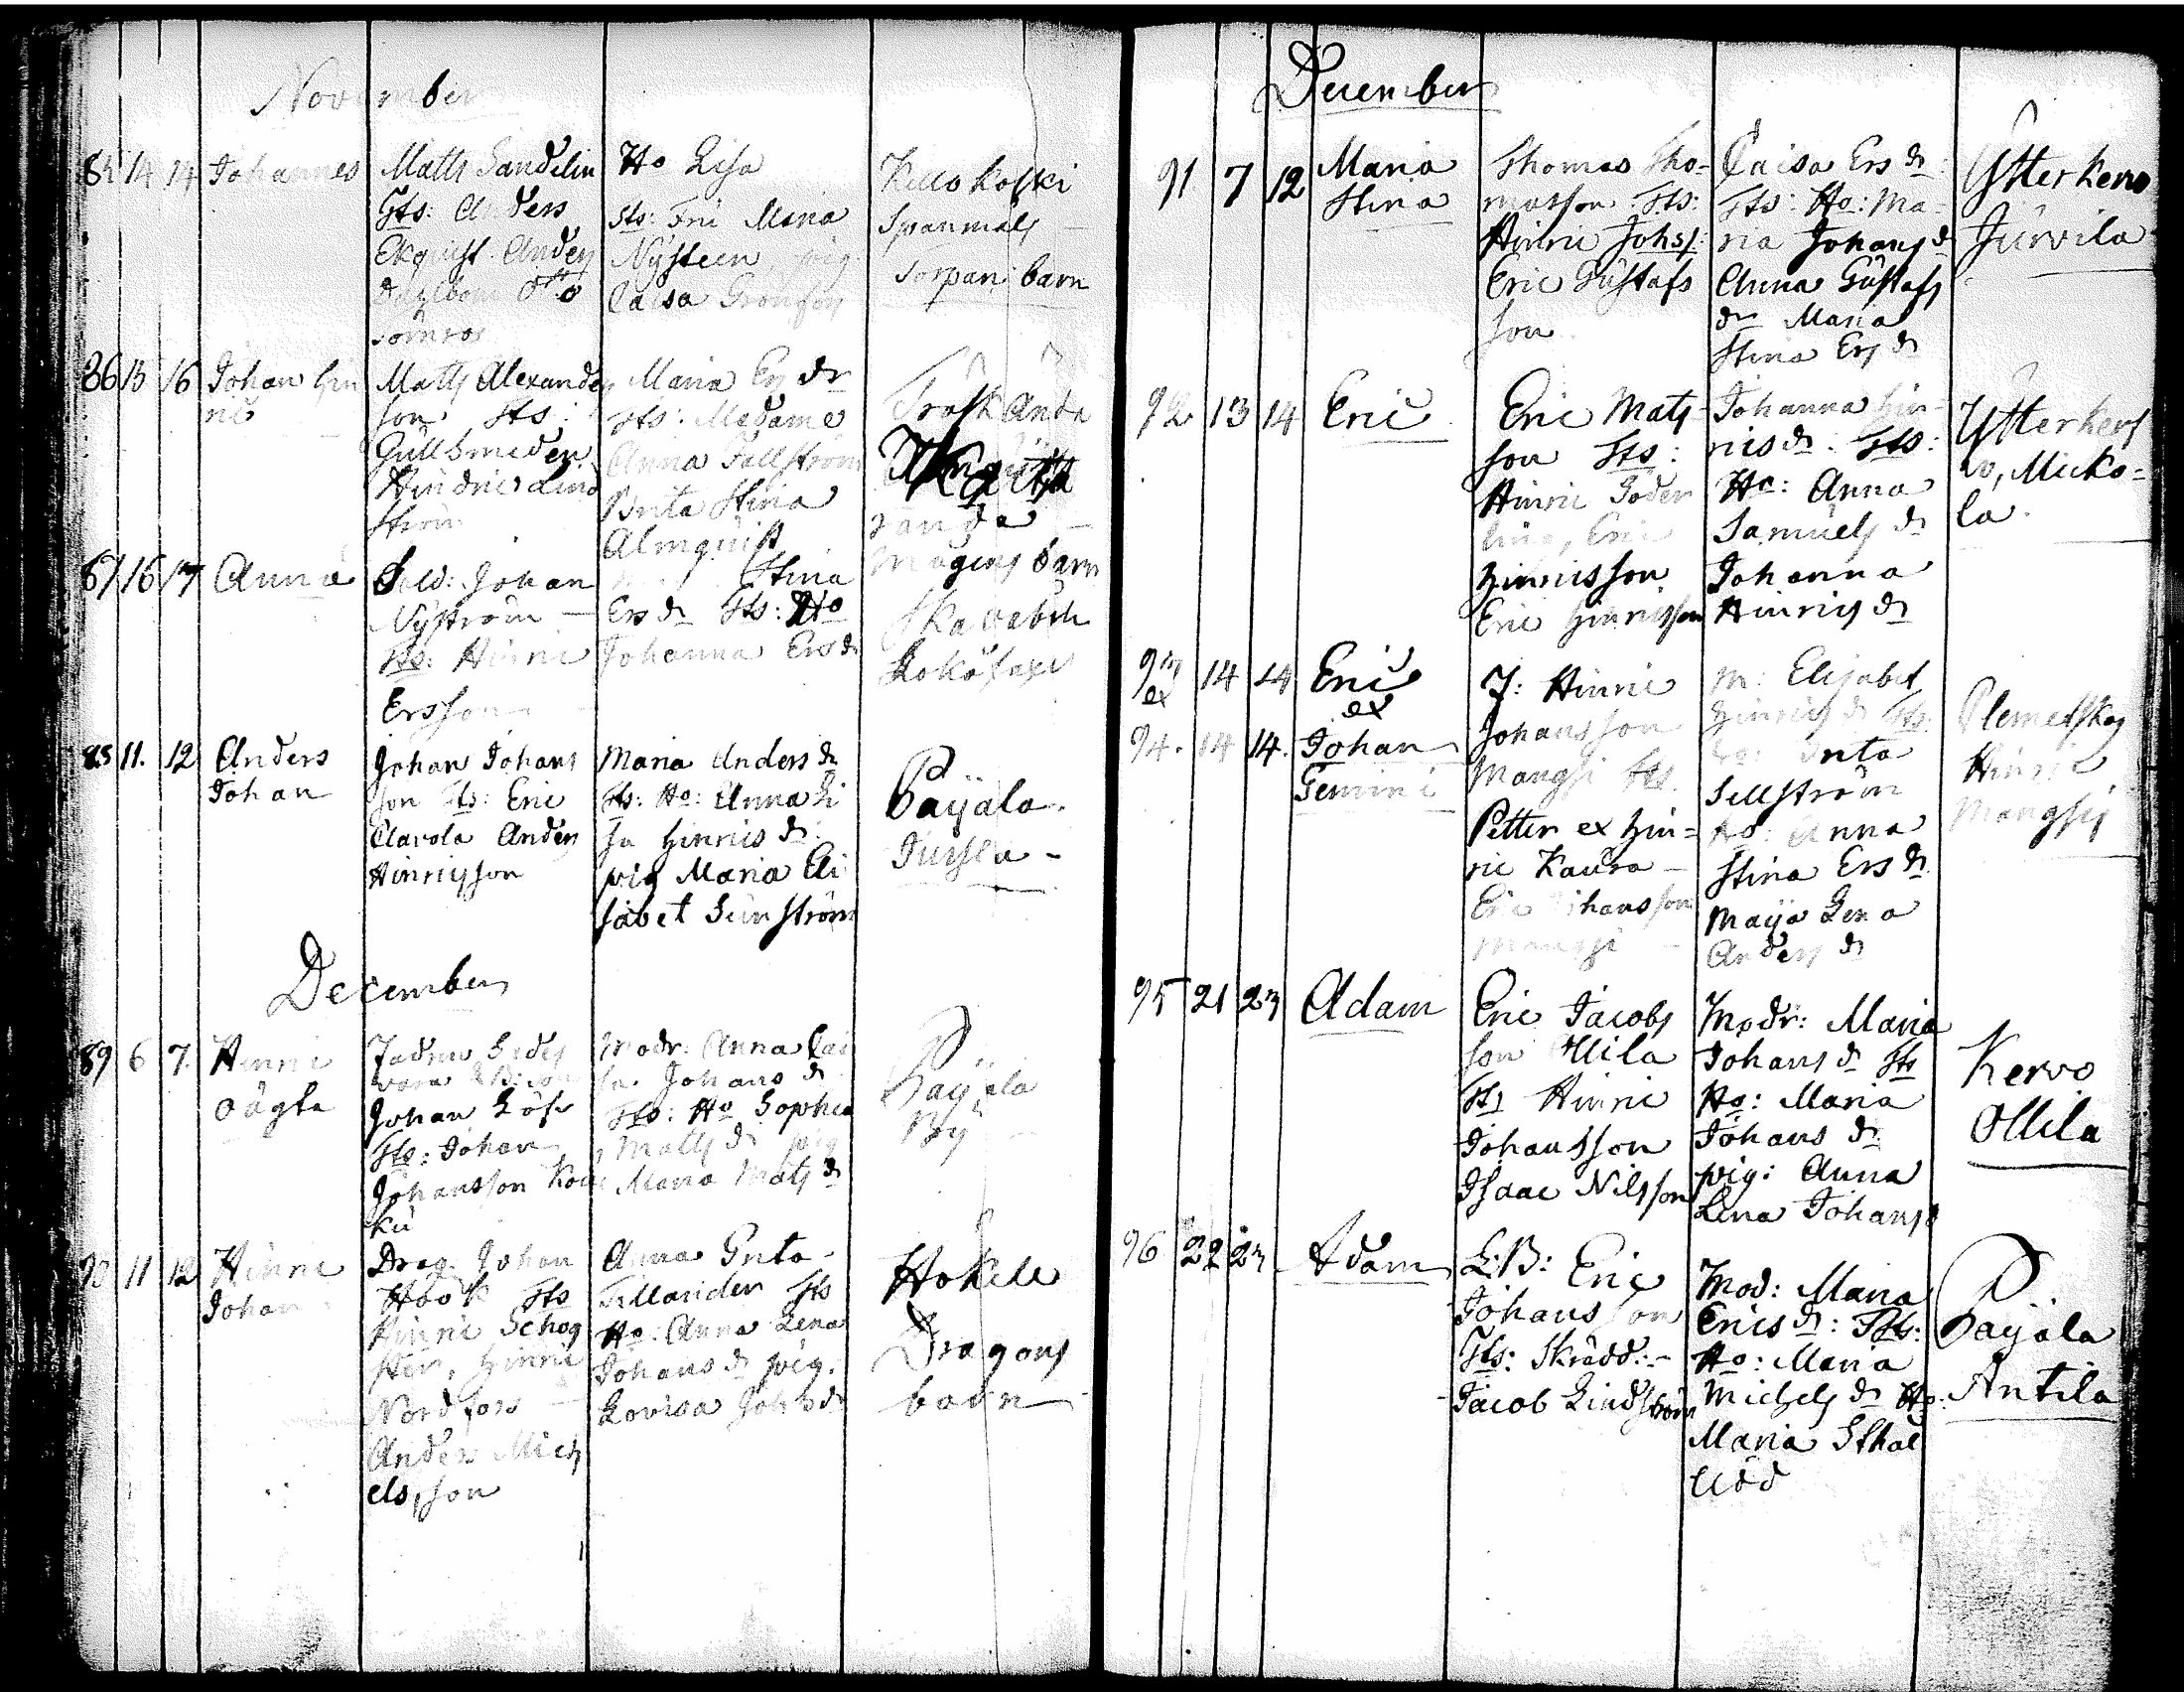 November
85 14 14 Johannes
Matts Sandelin
Fts: Anders
Ekquist Anders
Otto
Ho Lisa
Fts: Frü Maria
Nysteen, pig.
Caisa
Kellokoski
Spanmåls
barn
86 15 16 Johan Hin
ric
Matts Alexanders
son Fts:
Gullsmeden
Hindric Lind
ström
Maria Ers dr
Fts: Madame
Anna Fallström
Brita Stina
Almquist
Träskända
mågens barn
87 16 17 Anna
Sold: Johan
Nyström
Fts: Hinric
Ersson
Stina
Ers dr Fts: Ho
Johanna Ers dr
Skavaböle
88 11. 12 Anders
Johan
Johan Johans
son Fts: Eric
Clavola Anders
Hinricsson
Maria Anders dr
Fts: Ho: Anna Li
sa Hinrics dr
pig Maria Eli
sabet Sunström
Paijala.
Jussila
December
89 6 7. Hinric
oägta
Johan Löf
Fts: Johan
Johansson Kou
ku
Modr: Anna Cai
sa Johans dr
Fts: Ho Sophia
Matts dr pig
Maria Mats dr
Paijala
By
90 11 12 Hinric
Johan
Drag. Johan
Höök Fts
Hinric Schog
ster, Hinric
Nordfors
Anders Mich
elsson
Anna Grita
Tillander Fts
Ho: Anna Lena
Johans dr pig.
Lovisa Johs dr
Hokele
Dragons
barn
December
91. 7 12 Maria
Stina
Thomas Tho-
masson Fts:
Hinric Johss:
Eric Gustafs
son
Caisa Ers dr
Fts: Ho: Ma-
ria Johans dr
Anna Gustafs
dr Maria
Stina Ers dr
Ytterkervo
Jurvila
92 13 14 Eric
Eric Mats-
son Fts:
Hinric Söder
ling, Eric
Hinricsson
Eric Hinricsson
Johanna Hin-
rics dr. Fts:
Ho: Anna
Samuels dr
Johanna
Hinrics dr
Ytterker
vo, Micko-
la.
93 14 14 Eric
ex ex
94. 14 14. Johan
Gemini
F: Hinric
Johansson
Mangsi Fts.
Petter ex Hin-
ric Kaura
Eric Johansson
Mangsi
M: Elisabet
Hinrics dr Fts.
Ho: Brita
Sellström
Ho: Anna
Stina Ers dr
Maija Lena
Anders dr
Hinric
Mangsis
95 21 23 Adam
Eric Jacobs
son Ollila
Fts Hinric
Johansson
Isaac Nilsson
Modr: Maria
Johans dr Fts
Ho: Maria
Johans dr.
pig: Anna
Lena Johans d
Kervo
Ollila
96 22 23 Adam
L:B: Eric
Johansson
Fts: Skrädd:
Jacob Lindström
Mod: Maria
Erics dr: Fts:
Ho: Maria
Michels dr Ho:
Maria Sthal
Paijala
Antila